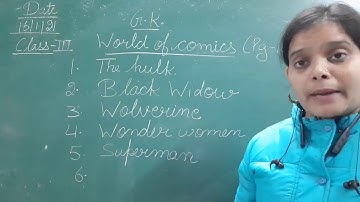 Date
15/1/21
Class-III
G.K.
World of comics (Pg-
1. The hulk.
2. Black Widow
3. Wolverine
4. Wonder women
5. Superman
6.